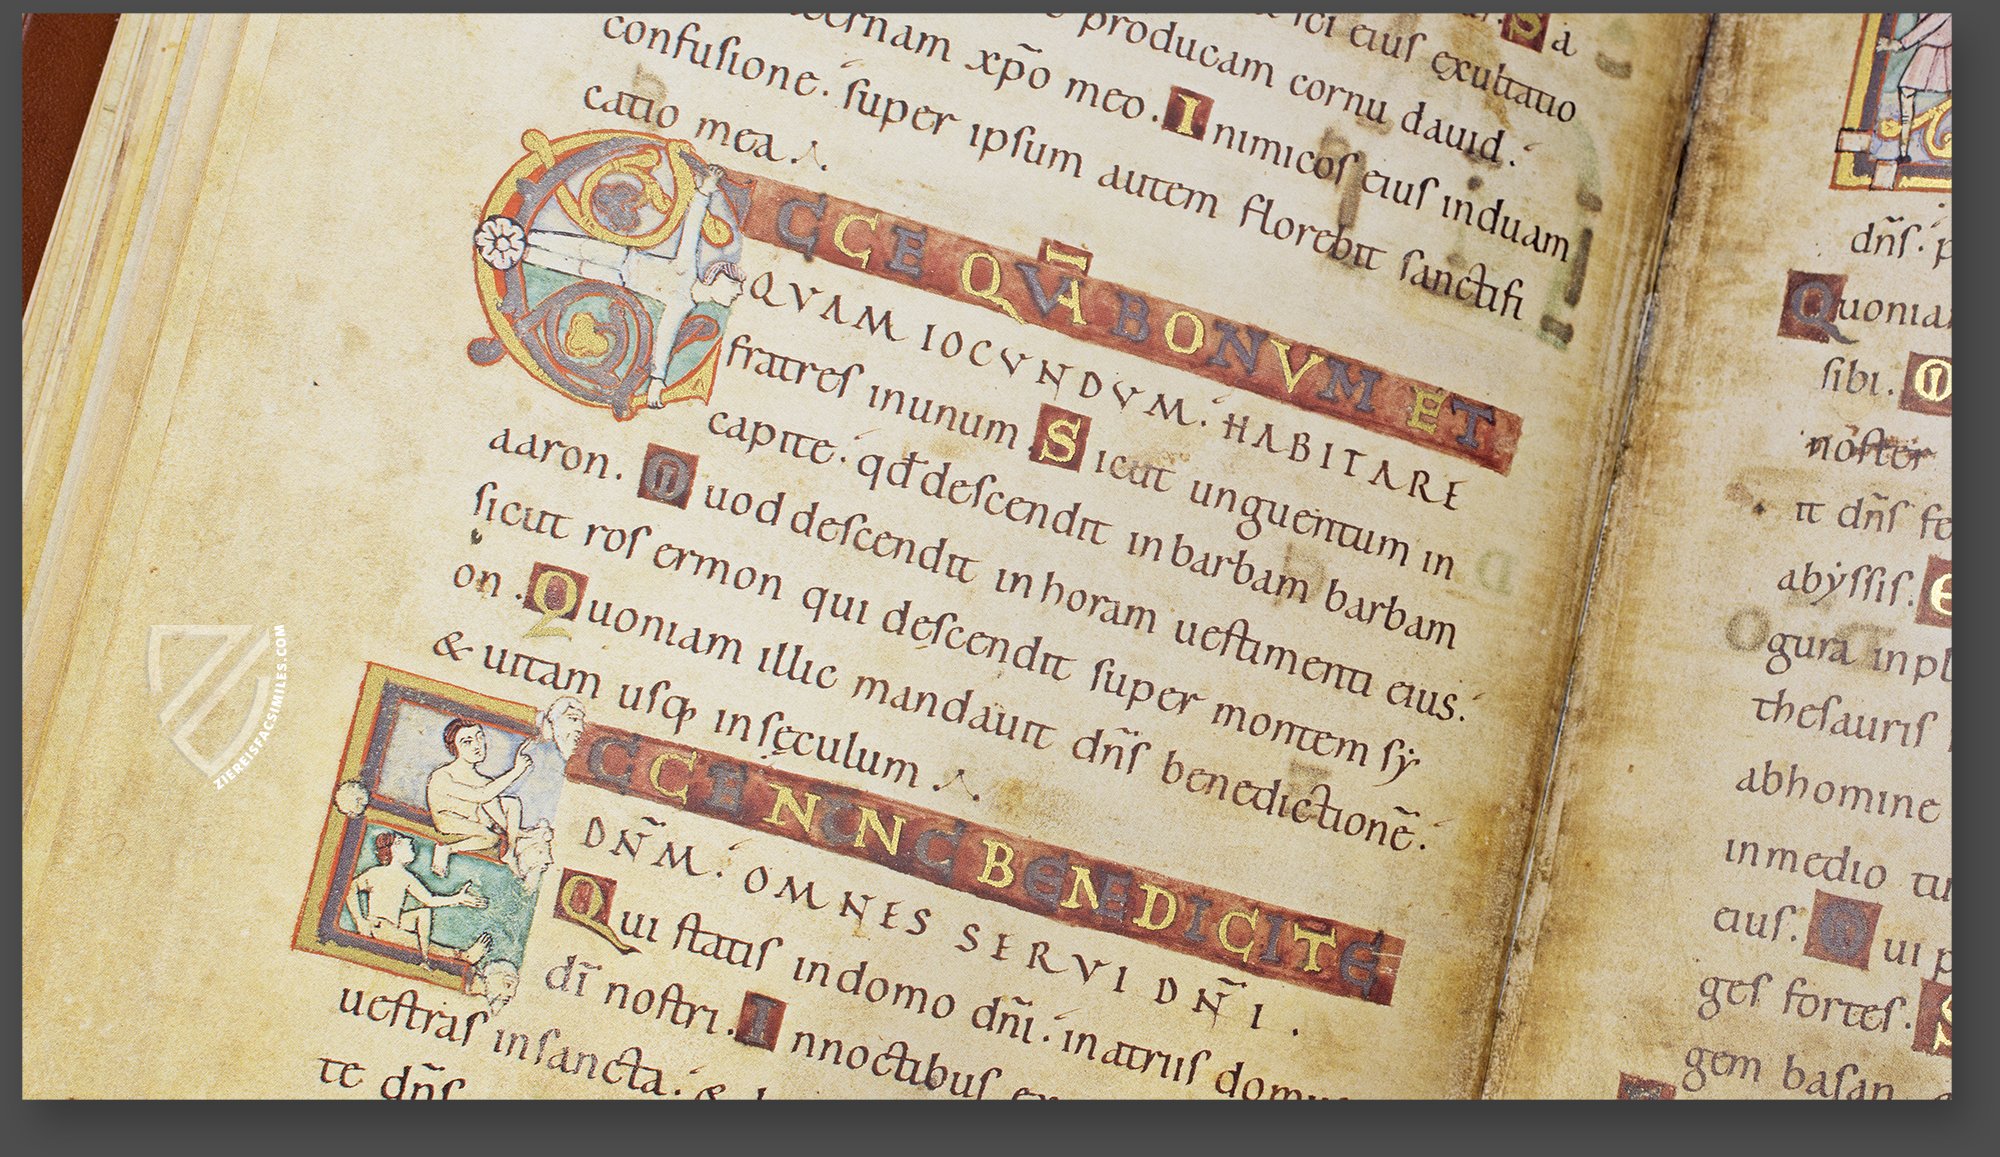 a
ſci eiuſ exultatio
producam cornu dauid.
cernam xp̄o meo. Inimicoſ eiuſ induam
confuſione. ſuper ipſum autem florebit ſanctifi
catio mea.
ECCE QVĀ BONVM ET
QVAM IOCVNDVM. HABITARE
fratreſ inunum Sicut unguentum in
capite. qđ deſcendit inbarbam barbam
aaron. Quod deſcendit inhoram ueſtimenti eius.
ſicut roſ ermon qui deſcendit ſuper montem ſẏ
on. Quoniam illic mandauit dn̄ſ benedictionē.
& uitam uſq; inſęculum.
ECCE NVNC BENEDICITE
DN̄M. OMNES SERVI DN̄I.
Qui ſtatiſ indomo dn̄i. inatriiſ domuſ
dī noſtri. Innoctibuſ ex
ueſtraſ inſancta. & b
te dn̄ſ
dn̄ſ. p
Quonia
ſibi.
noſter
it dn̄ſ fe
abẏſſiſ.
gura inpl
theſauriſ
abhomine
inmedio tu
eiuſ. Qui p
geſ forteſ. S
gem baſan
ZIEREISFACSIMILES.COM